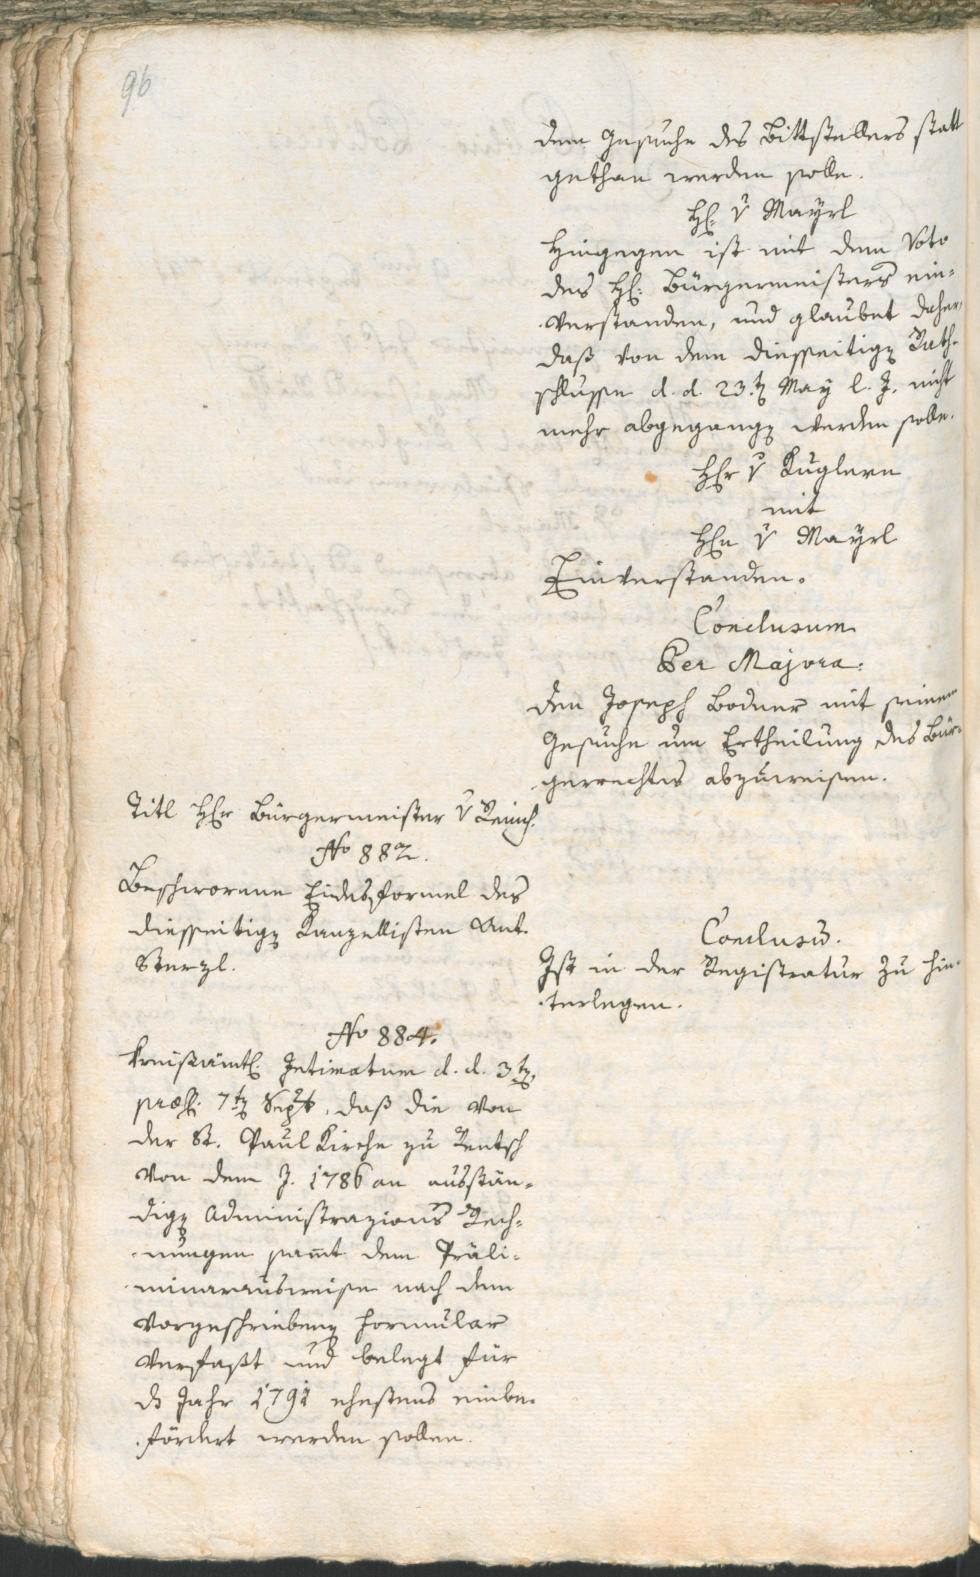 96
dem Gesuche des Bittstellers statt
gethan werden solle.
H: v Mayrl
Hingegen ist mit dem Voto
des H: Bürgermeisters ein-
verstanden, und glaubet daher,
daß von dem diesseitigen Rath-
schlusse d. d. 23.t May l. J. nicht
mehr abgegangen werden solle.
Hr v Kuglern
mit
Hn v Mayrl
Einverstanden.
Conclusum
Per Majora:
den Joseph Bodner mit seinem
Gesuche um Ertheilung des Bür-
gerrechtes abzuweisen.
Titl Hr Bürgermeister v Reinisch.
No 882.
Beschworene Eidesformel des
diesseitigen Kanzellisten Ant.
Sterzl.
Conclusū.
Ist in der Registratur zu hin-
terlegen.
No 884.
Kreisämtl. Intimatum d. d. 3t
præs. 7t Sept. daß die von
der St. Paul Kirche zu Rentsch
von dem J. 1786 an ausstän-
digen Administrazions Rech-
nungen samt dem Präli-
minarausweise nach dem
vorgeschriebenen Formular
verfaßt und belegt für
ds Jahr 1791 ehestens einbe-
fördert werden sollen.